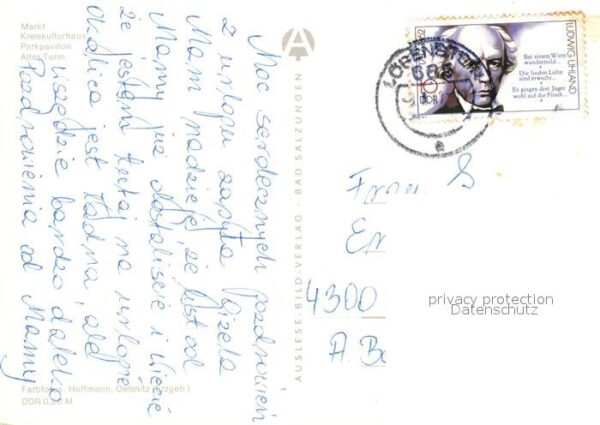 Markt
Kreiskulturhaus
Parkpavillon
Alter Turm
Moc serdecznych pozdrowień
z urlopu zasyła Gizela
Mam nadzieję, że list od
Mamy już dostaliście i wiecie
że jestem tutaj na urlopie
okolica jest ładna, ale
wszędzie bardzo daleko
Pozdrowienia od Mamy
Farbfotos: Hoffmann, Oelsnitz (Erzgeb.)
DDR 0,20 M
A
AUSLESE-BILD-VERLAG · BAD SALZUNGEN
LOBENST
DDR
LUDWIG UHLAND
Bei einem Wirte
wundermild...
Die linden Lüfte
sind erwacht...
Es gingen drei Jäger
wohl auf die Pirsch...
Frau S
Er
4300
A. Be
privacy protection
Datenschutz